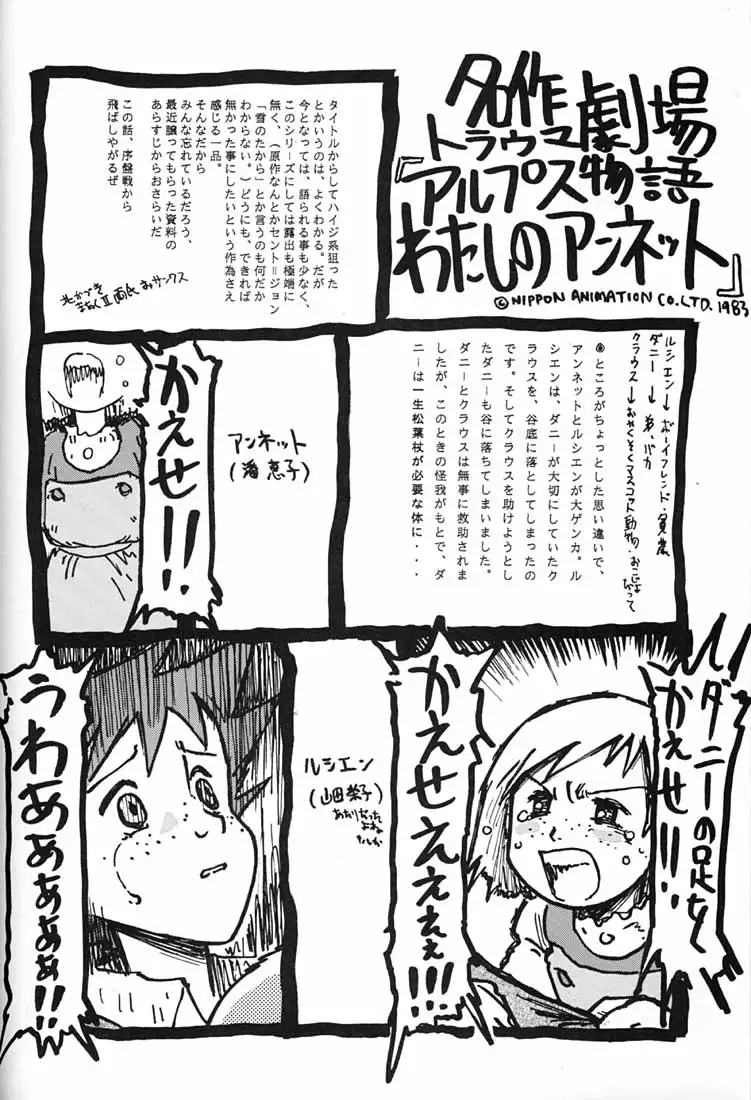 名作
トラウマ劇場
『アルプス物語
わたしのアンネット』
©NIPPON ANIMATION CO.LTD. 1983
タイトルからしてハイジ系狙った
とかいうのは、よくわかる。だが
今となっては、語られる事も少なく、
このシリーズにしては露出も極端に
無く、(原作なんとかセント=ジョン
「雪のたから」とか言うのも何だか
わからない。)どうにも、できれば
無かった事にしたいという作為さえ
感じる一品。
そんなだから
みんな忘れているだろう、
最近譲ってもらった資料の
あらすじからおさらいだ
この話、序盤戦から
飛ばしやがるぜ
サンクス
ルシエン→ボーイフレンド・貧農
ダニー→弟、バカ
クラウス→おやくそくマスコット動物・おこじょ
だって
●ところがちょっとした思い違いで、
アンネットとルシエンが大ゲンカ。ル
シエンは、ダニーが大切にしていたク
ラウスを、谷底に落としてしまったの
です。そしてクラウスを助けようとし
たダニーも谷に落ちてしまいました。
ダニーとクラウスは無事に救助されま
したが、このときの怪我がもとで、ダ
ニーは一生松葉杖が必要な体に・・・
アンネット
(潘恵子)
かえせ!!
ダニーの足を
かえせ!!
かえせえええぇ!!!
ルシエン
(山田栄子)
うわあぁぁぁぁ!!